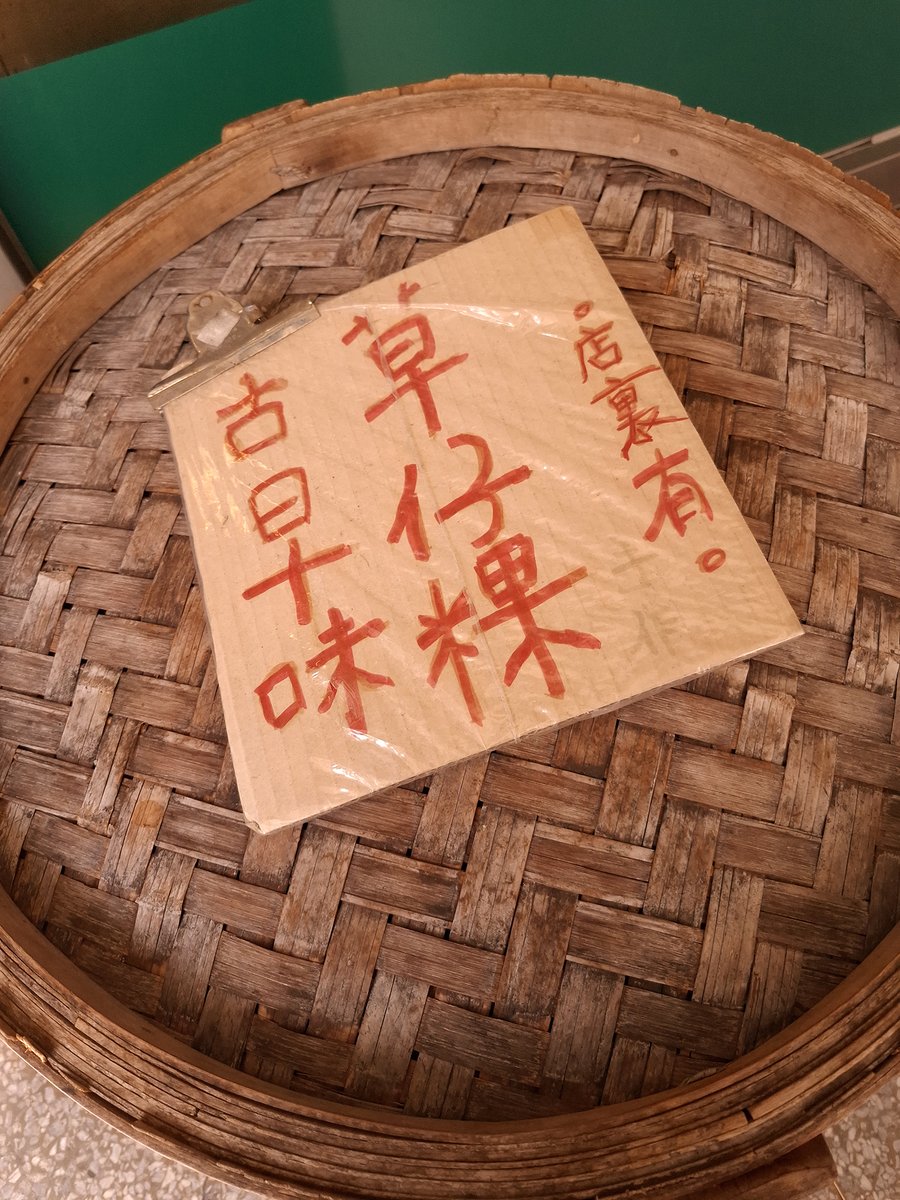 。店裏有。
草仔粿
古早味